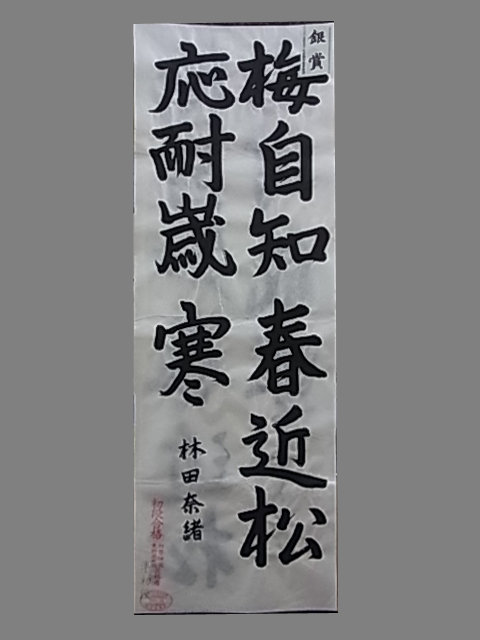 銀賞
梅自知春近松
応耐歳寒
林田奈緒
初段合格